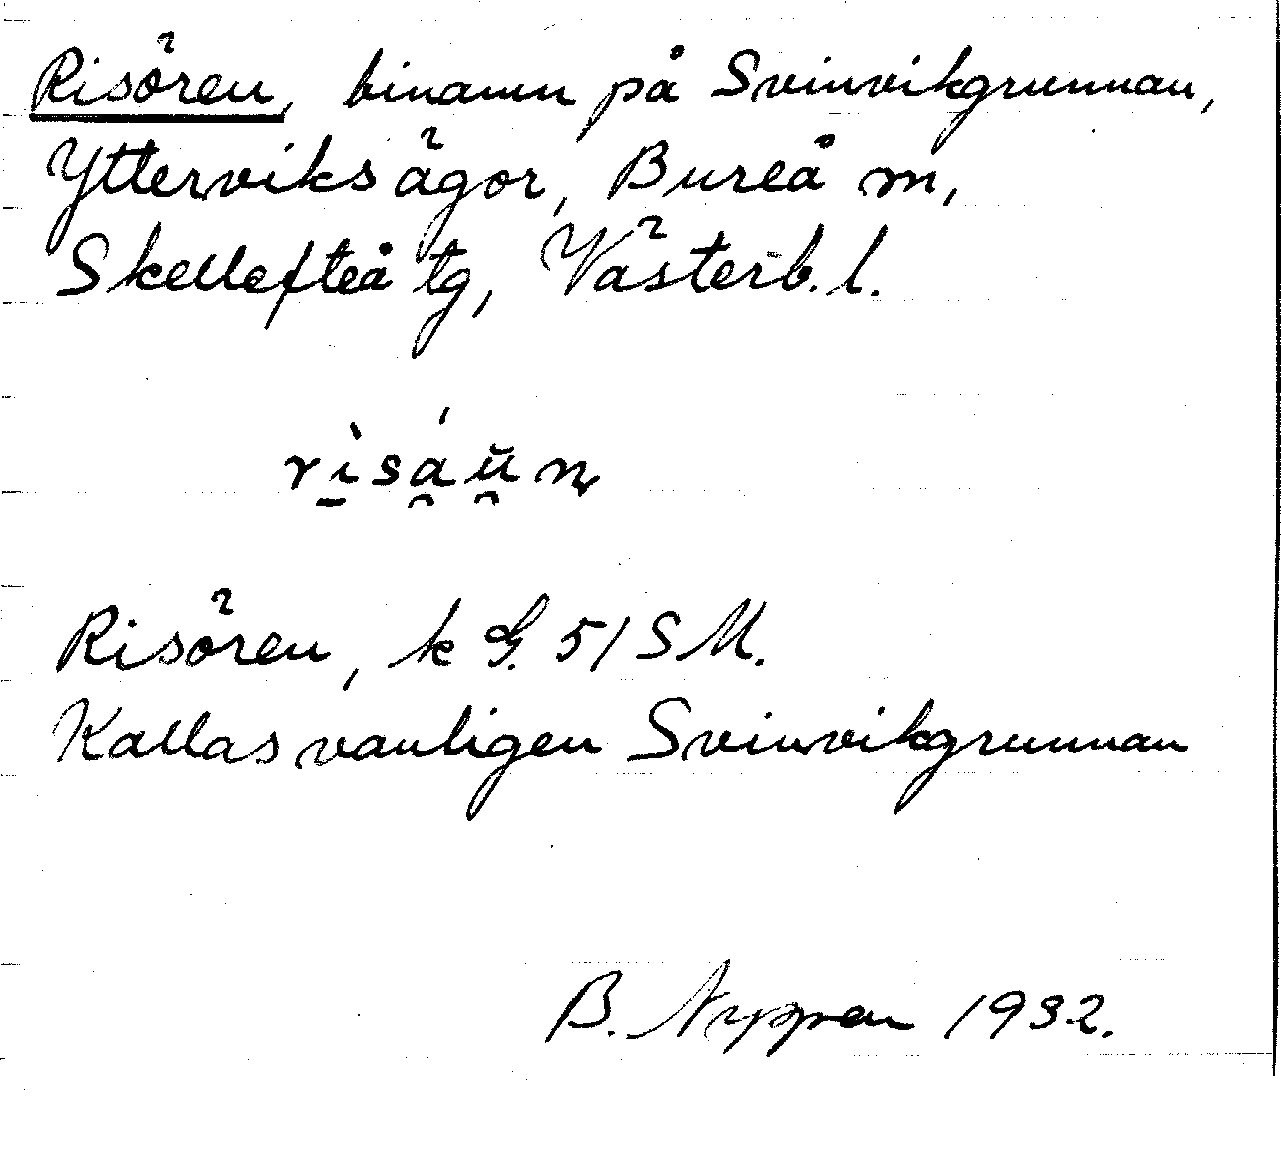 Risören, binamn på Svinvikgrunnan,
Ytterviks ägor, Bureå m,
Skellefteå tg, Västerb. l.
rì̱sá̯ŭ̯ṇ
Risören, k G. 51 S M.
Kallas vanligen Svinvikgrunnan
B. Nyppen 1932.